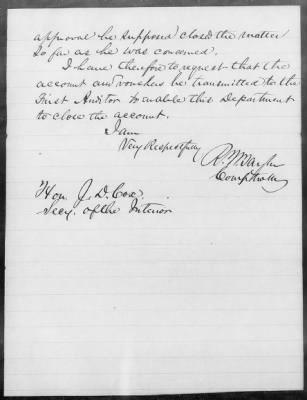 approval he supposed closed the matter
so far as he was concerned.
I have therefore to request that the
account and vouchers be transmitted to the
First Auditor to enable this Department
to close the account.
I am
Very Respectfully
R. W. Tayler
Comptroller
Hon. J. D. Cox,
Secy. of the Interior